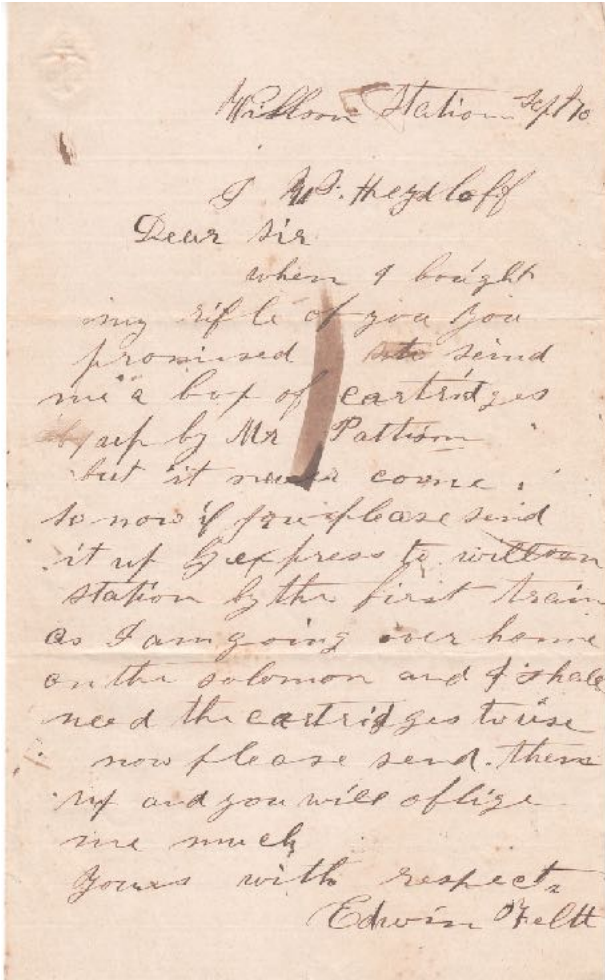 Willson Station Sept 10
Dear Sir
when I bought
my rifle of you you
promised to send
me a box of cartridges
up by Mr Pattison
but it never come
so now if you please send
it up by express to willson
station by the first train
as I am going over home
on the solomon and I shall
need the cartridges to use
now please send them
up and you will oblige
me much
yours with respects
Edwin